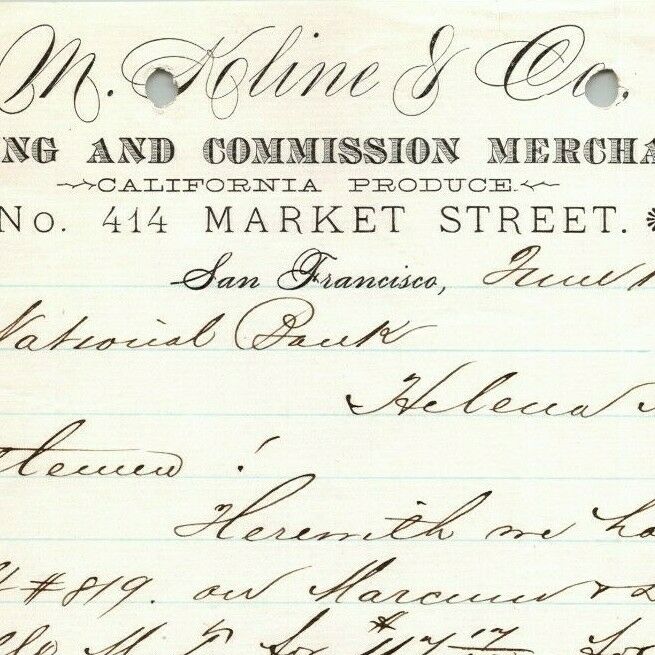 M. Kline & Co.
NG AND COMMISSION MERCHA
CALIFORNIA PRODUCE.
No. 414 MARKET STREET.
San Francisco, June 1
National Bank
Helena
tlemen !
Herewith we ha
#819. on Marcum &
for $117 17